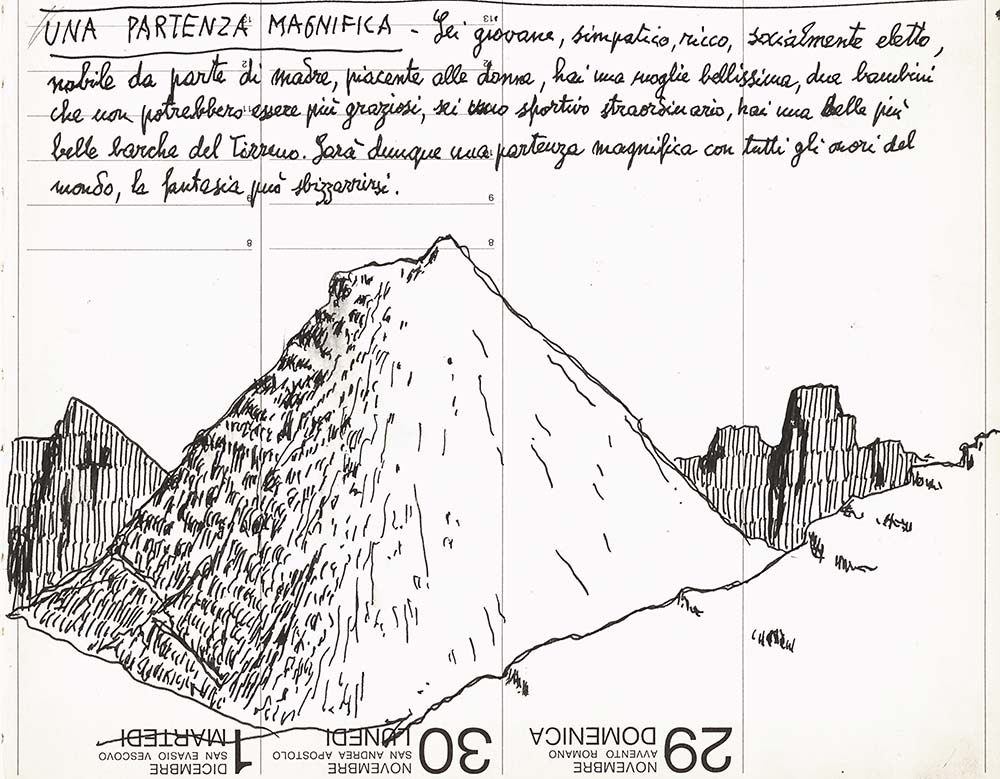 UNA PARTENZA MAGNIFICA - Sei giovane, simpatico, ricco, socialmente eletto,
nobile da parte di madre, piacente alle donne, hai una moglie bellissima, due bambini
che non potrebbero essere più graziosi, sei uno sportivo straordinario, hai una delle più
belle barche del Tirreno. Sarà dunque una partenza magnifica con tutti gli onori del
mondo, la fantasia può sbizzarrirsi.
13
12
9
9
8
8
1 MARTEDÌ
SAN EVASIO VESCOVO
DICEMBRE
30 LUNEDÌ
SAN ANDREA APOSTOLO
NOVEMBRE
29 DOMENICA
AVVENTO ROMANO
NOVEMBRE